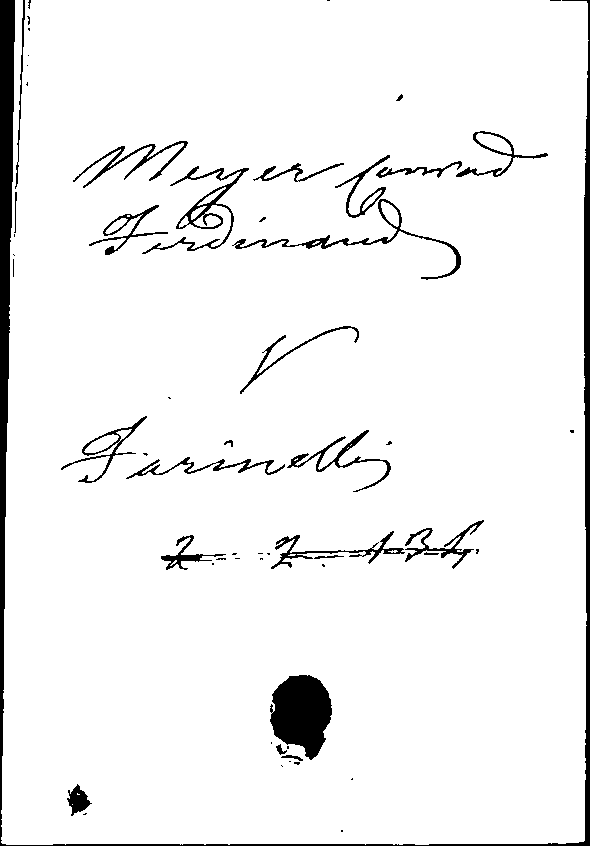 Meyer Conrad
Ferdinand
V
Farinelli